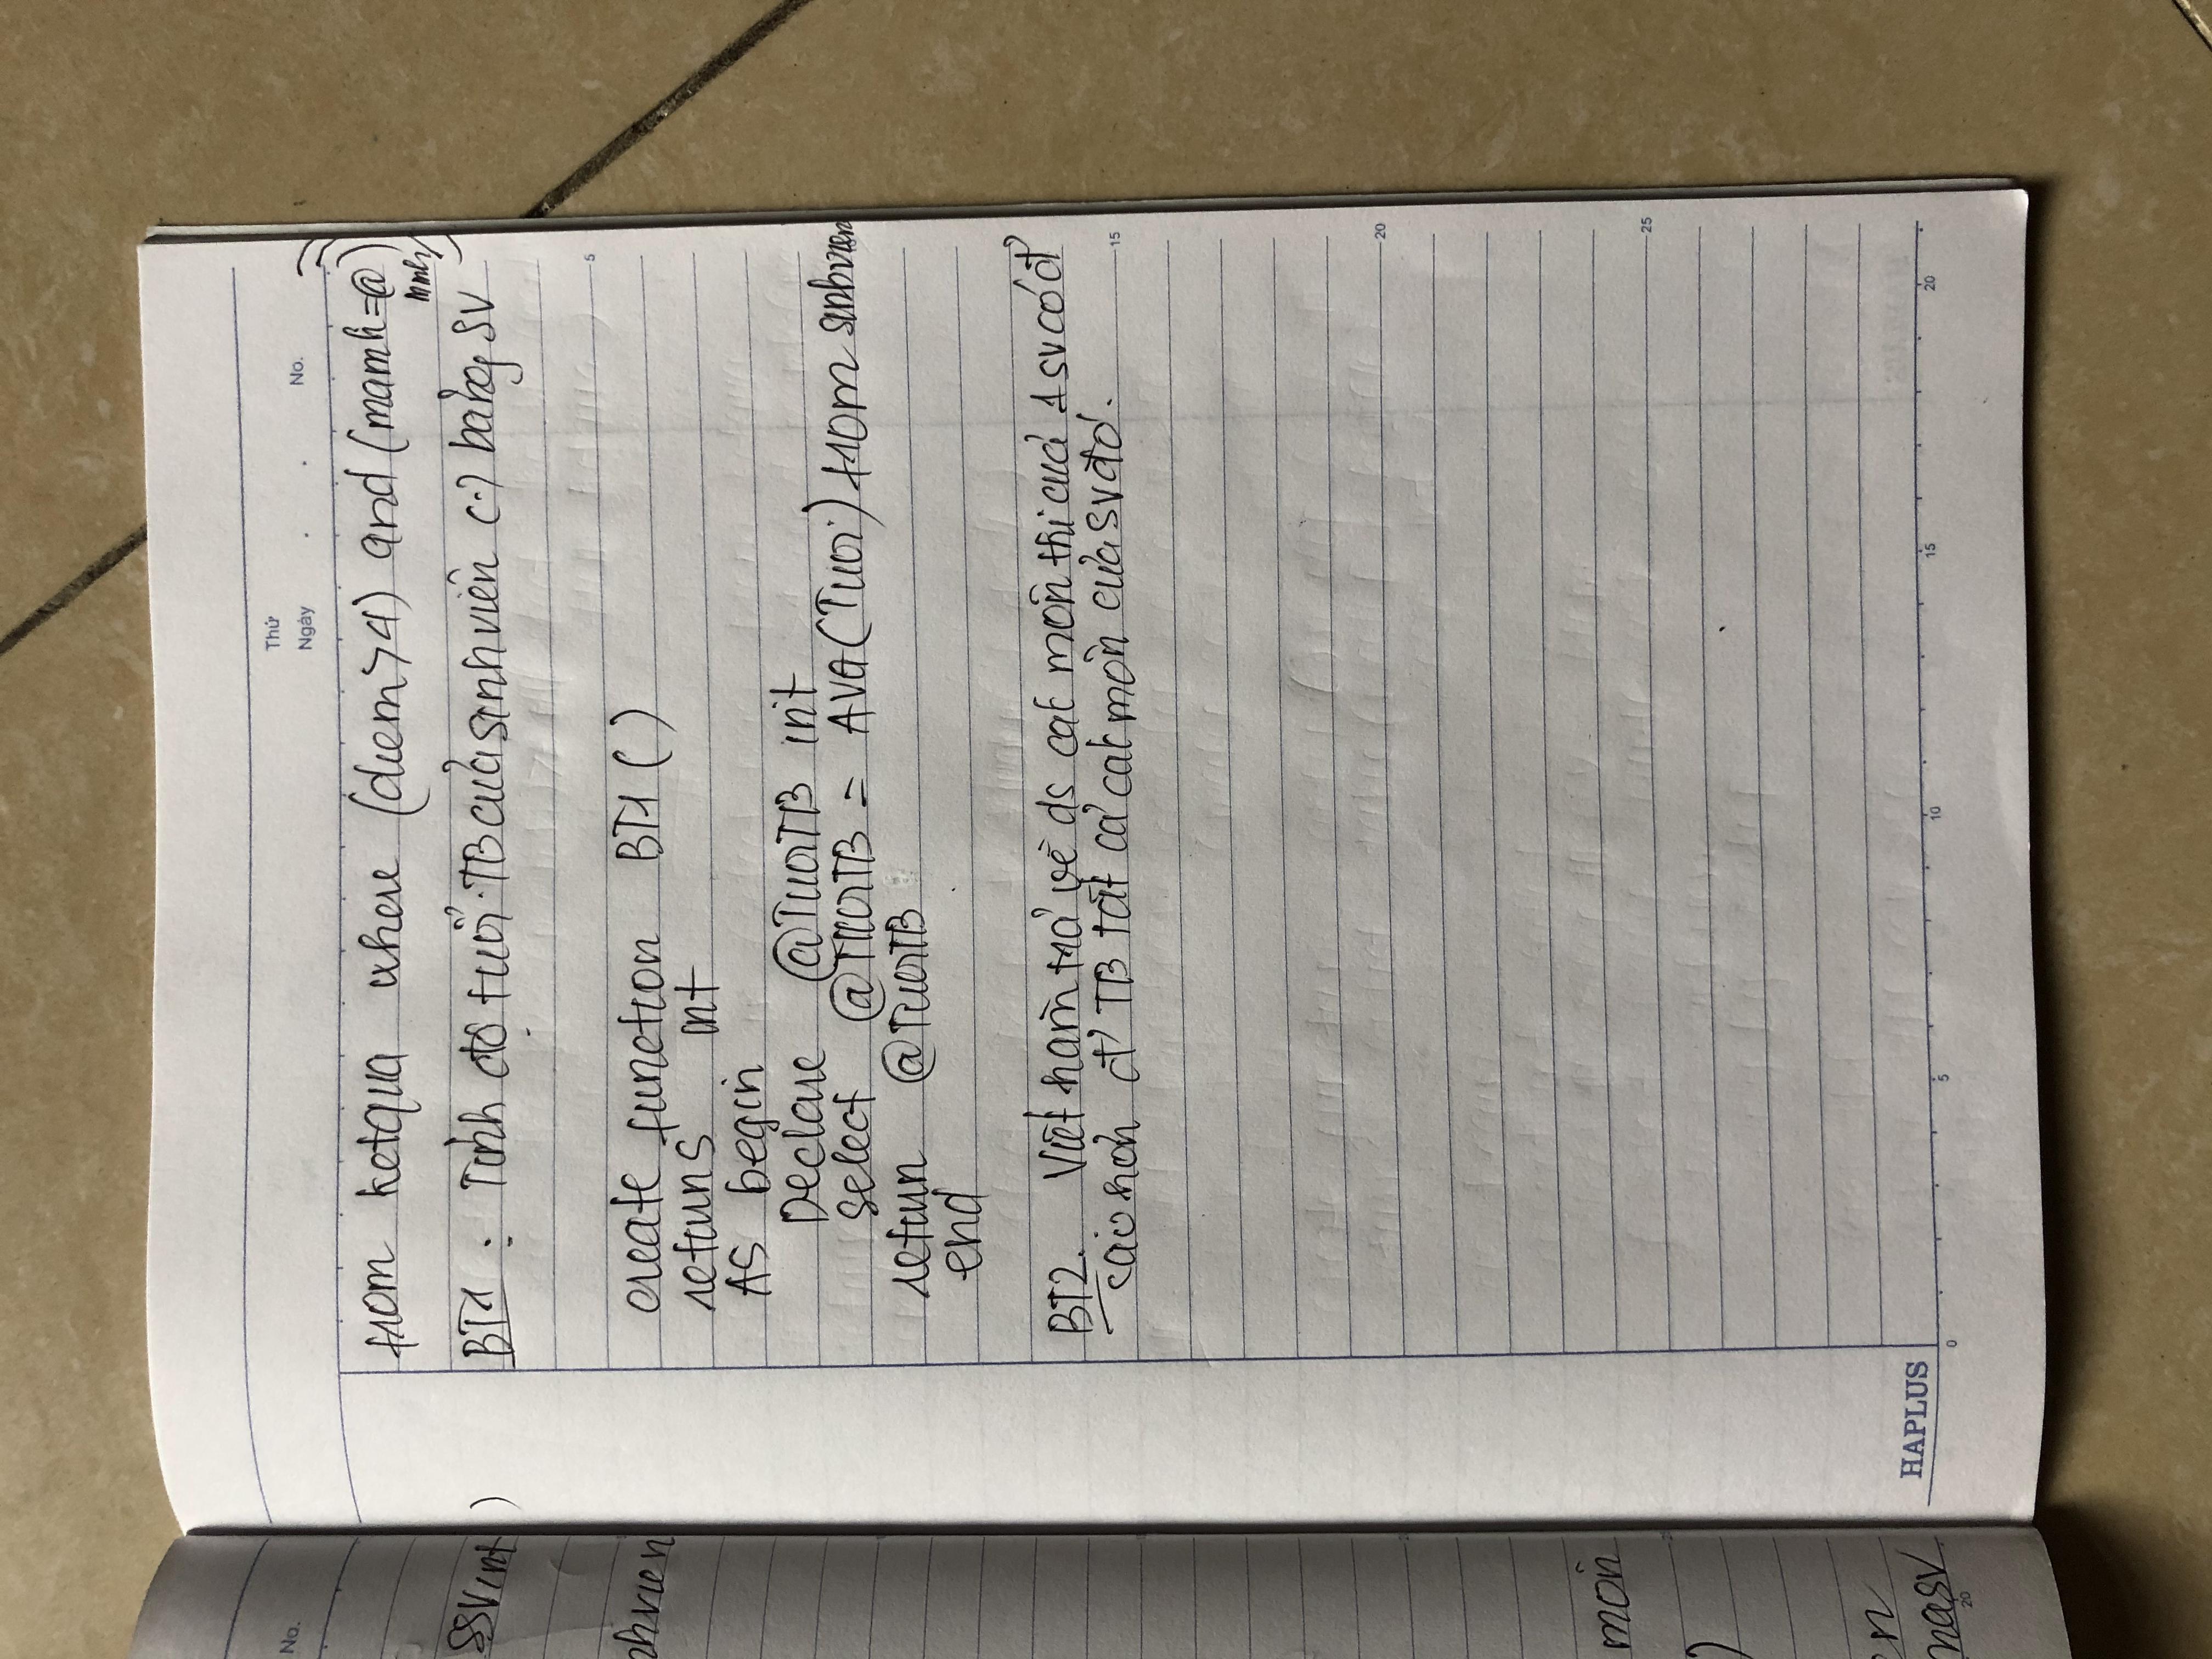 No.
SSVint )
nhvien
môn
)
en
masv
20
Thứ
Ngày . . No.
from ketqua where (diem>4) and (mamh=@
mmh)
BT1 : Tính độ tuổi TB của sinh viên (.) bảng SV
5
create function BT1 ( )
returns int
AS begin
Declare @TuoiTB int
select @TuoiTB = AVG(Tuoi) from sinhvien
return @TuoiTB
end
BT2. Viết hàm trả về ds các môn thi của 1 sv có đ'
cao hơn đ' TB tất cả các môn của SV đó.
15
20
25
HAPLUS
0 5 10 15 20